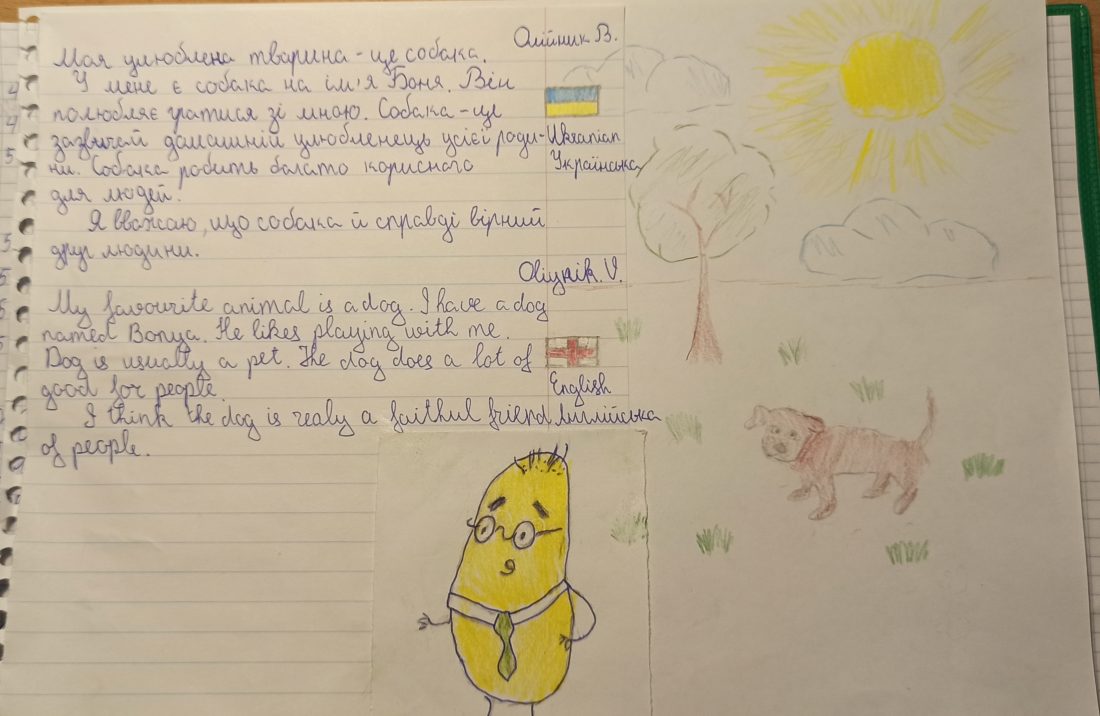 Олійник В.
Моя улюблена тварина - це собака.
У мене є собака на ім'я Боня. Він
полюбляє гратися зі мною. Собака - це
зазвичай домашній улюбленець усієї роди-
ни. Собака робить багато корисного
для людей.
Я вважаю, що собака й справді вірний
друг людини.
Ukranian
Українська
Oliynik. V.
My favourite animal is a dog. I have a dog
named Bonya. He likes playing with me.
Dog is usually a pet. The dog does a lot of
good for people.
I think the dog is realy a faithful friend
of people.
English
Англійська